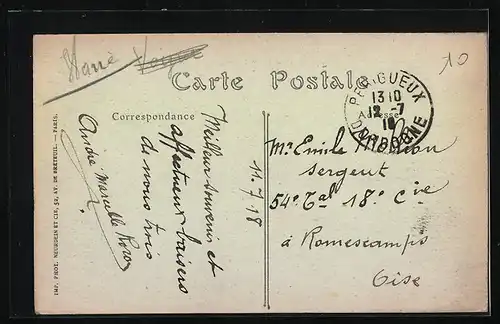 10
Carte Postale
Correspondance
Adresse
PERIGUEUX
13 10
12-7
18
DORDOGNE
Meilleur souvenir et
affectueux baisers
de nous trois
11.7.18
Mr. Emile
Sergent
54e Tal 18e Cie
à Romescamps
Oise
IMP. PHOT. NEURDEIN ET CIE, 52, AV. DE BRETEUIL. — PARIS.